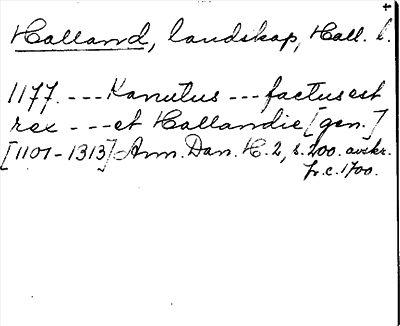 +
Halland, landskap, Hall. l.
1177. --- Kanutus --- factus est
rex --- et Hallandie [gen.]
[1101-1313] Ann. Dan. H. 2, s. 200. avskr.
fr. c. 1700.